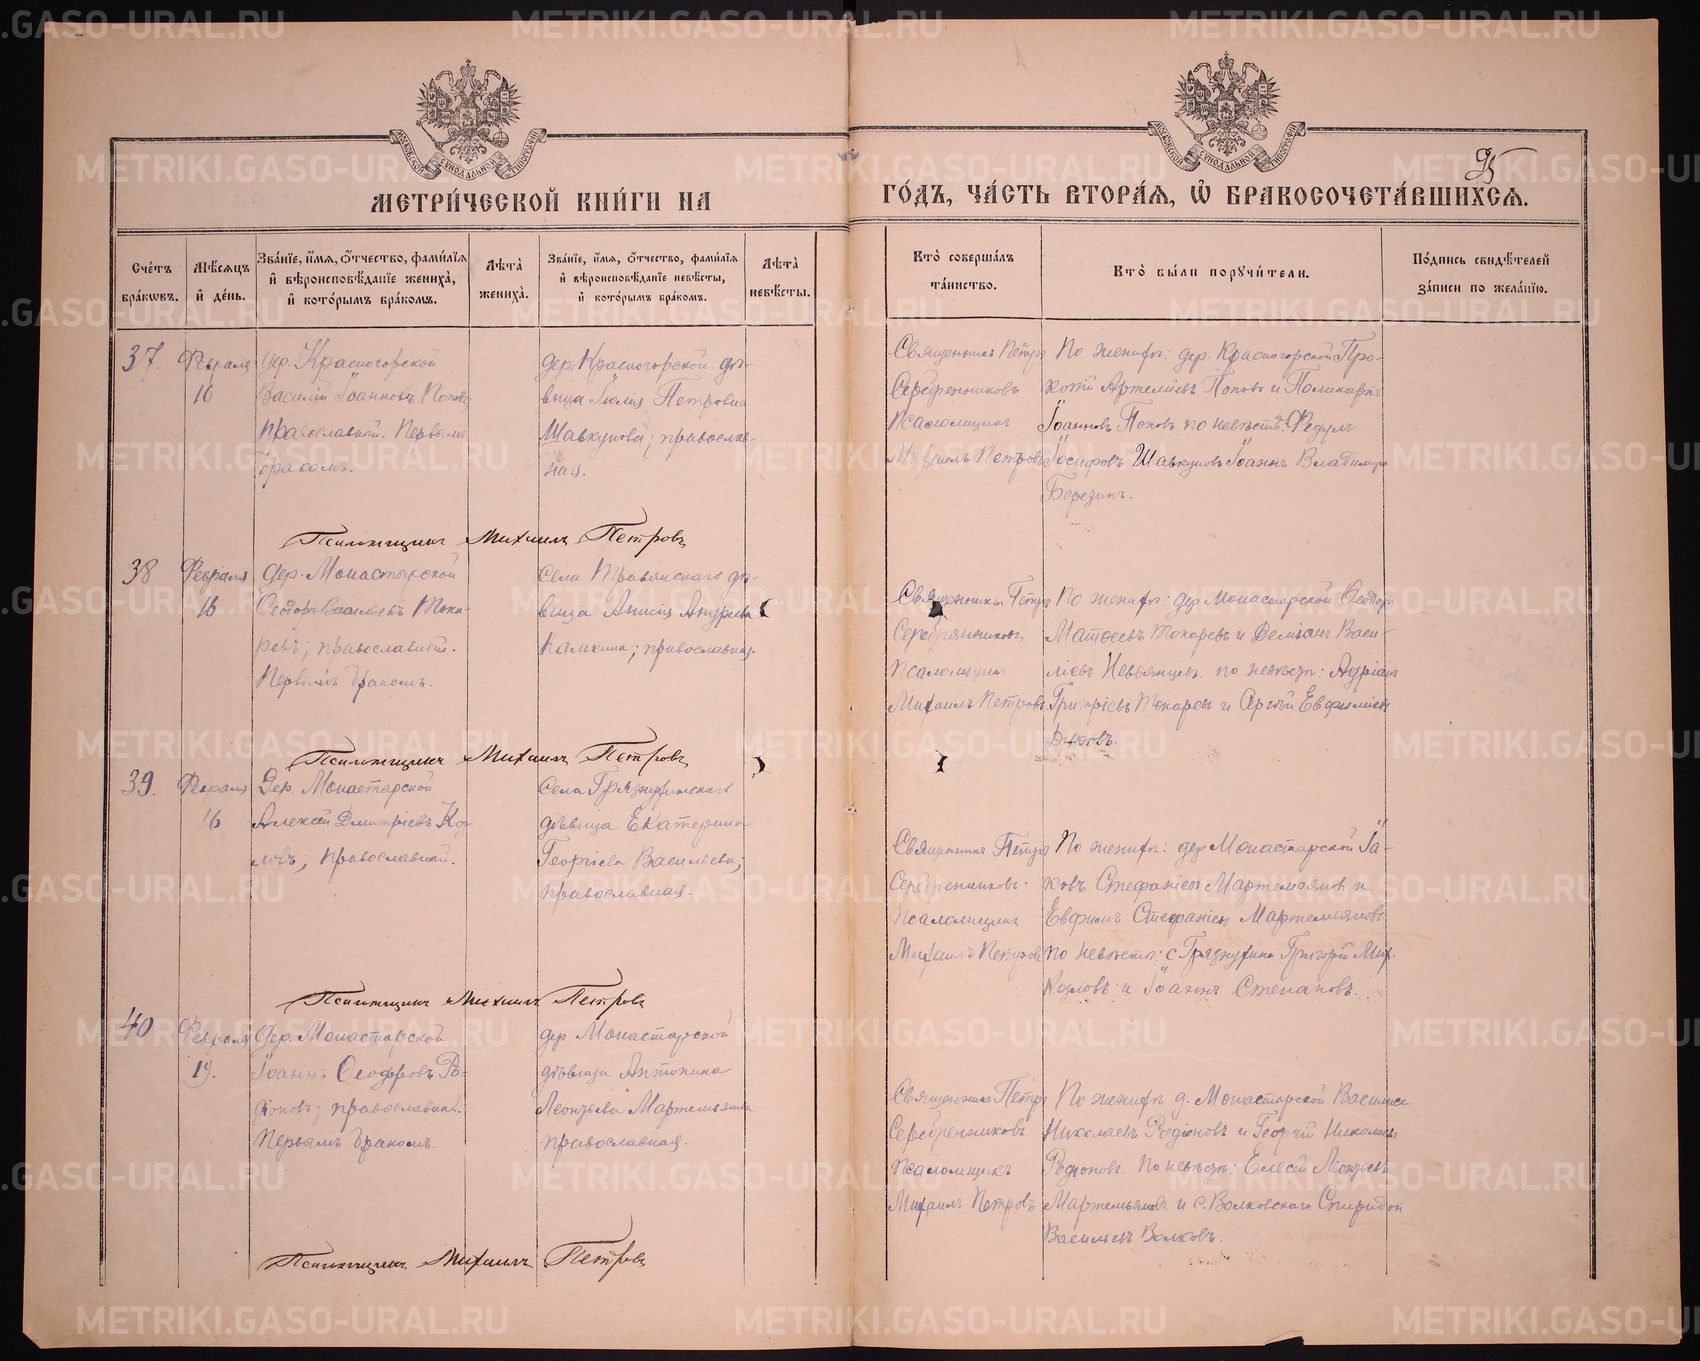 МЕТРИ́ЧЕСКОЙ КНИ́ГИ НА ГО́ДЪ, ЧА́СТЬ ВТОРА́Я, Ѡ БРАКОСОЧЕТА́ВШИХСЯ.
95
Сче́тъ бра́кѡвъ.
Мѣ́сяцъ и де́нь.
Зва́нїе, и́мя, ѻ́тчество, фами́лїя и вѣроисповѣ́данїе жениха̀, и кото́рымъ бра́комъ.
Лѣ́та жениха̀.
Зва́нїе, и́мя, ѻ́тчество, фами́лїя и вѣроисповѣ́данїе невѣ́сты, и кото́рымъ бра́комъ.
Лѣ́та невѣ́сты.
Кто̀ соверша́лъ та́инство.
Кто̀ бы́ли порꙋчи́тели.
По́дпись свидѣ́телей за́писи по жела́нїю.
37.
Февраля
16
Дер. Красногорской
Василій Іоанновъ Поповъ
православный. Первымъ
бракомъ.
дер. Красногорской дѣ-
вица Іулія Петровна
Шавкунова; православ-
ная.
Священникъ Петръ
Серебренниковъ
Псаломщикъ
Михаилъ Петровъ
По женихѣ: дер. Красногорской Про-
копій Артеміевъ Поповъ и Поликарпъ
Іоанновъ Поповъ по невѣстѣ: Федулъ
Іосифовъ Шавкуновъ Іоаннъ Владимировъ
Березинъ.
Псаломщикъ Михаилъ Петровъ
38
Февраля
16
Дер. Монастырской
Ѳеодоръ Васильевъ Тока-
ревъ; православный.
Первымъ бракомъ.
Села Травянскаго дѣ-
вица Анисія Андреева
; православная.
Священникъ Петръ
Серебренниковъ
Псаломщикъ
Михаилъ Петровъ
По женихѣ: дер Монастырской Ѳеодоръ
Матѳеевъ Токаревъ и Деміанъ Васи-
ліевъ Невьянцевъ. по невѣстѣ: Андріанъ
Григоріевъ Токаревъ и Сергѣй Евфиміевъ
Псаломщикъ Михаилъ Петровъ
39.
Февраля
16
Дер. Монастырской
Алексѣй Дмитріевъ Коз-
ловъ; православный.
Села Грязнухинскаго
дѣвица Екатерина
Георгіева Васильева;
православная.
Священникъ Петръ
Серебренниковъ.
Псаломщикъ
Михаилъ Петровъ
По женихѣ: дер Монастырской Іа-
ковъ Стефаніевъ Мартемьяновъ и
Евфимъ Стефаніевъ Мартемьяновъ
по невѣстѣ: с Грязнухина Григорій Мих.
Козловъ и Іоаннъ Степановъ.
Псаломщикъ Михаилъ Петровъ
40
Февраля
19.
Дер. Монастырской
Іоаннъ Ѳеодоровъ Ро-
діоновъ; православный.
Первымъ бракомъ.
дер Монастырской
дѣвица Антонина
Леонтьева Мартемьянова
православная.
Священникъ Петръ
Серебренниковъ
Псаломщикъ
Михаилъ Петровъ
По женихѣ д. Монастырской Василій
Николаевъ Родіоновъ и Георгій Николаевъ
Родіоновъ. По невѣстѣ: Елесѣй Леонтьевъ
Мартемьяновъ и с. Волковскаго Спиридонъ
Васильевъ Волковъ.
Псаломщикъ Михаилъ Петровъ
METRIKI.GASO-URAL.RU